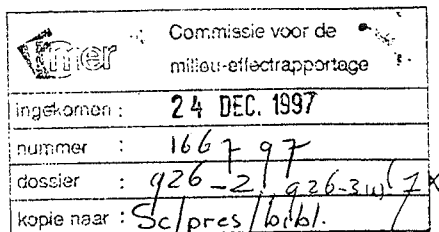 mer
Commissie voor de
milieu-effectrapportage
ingekomen : 24 DEC. 1997
nummer : 1667 97
dossier : 926-2, 926-3
kopie naar : Sc/pres/bibl.